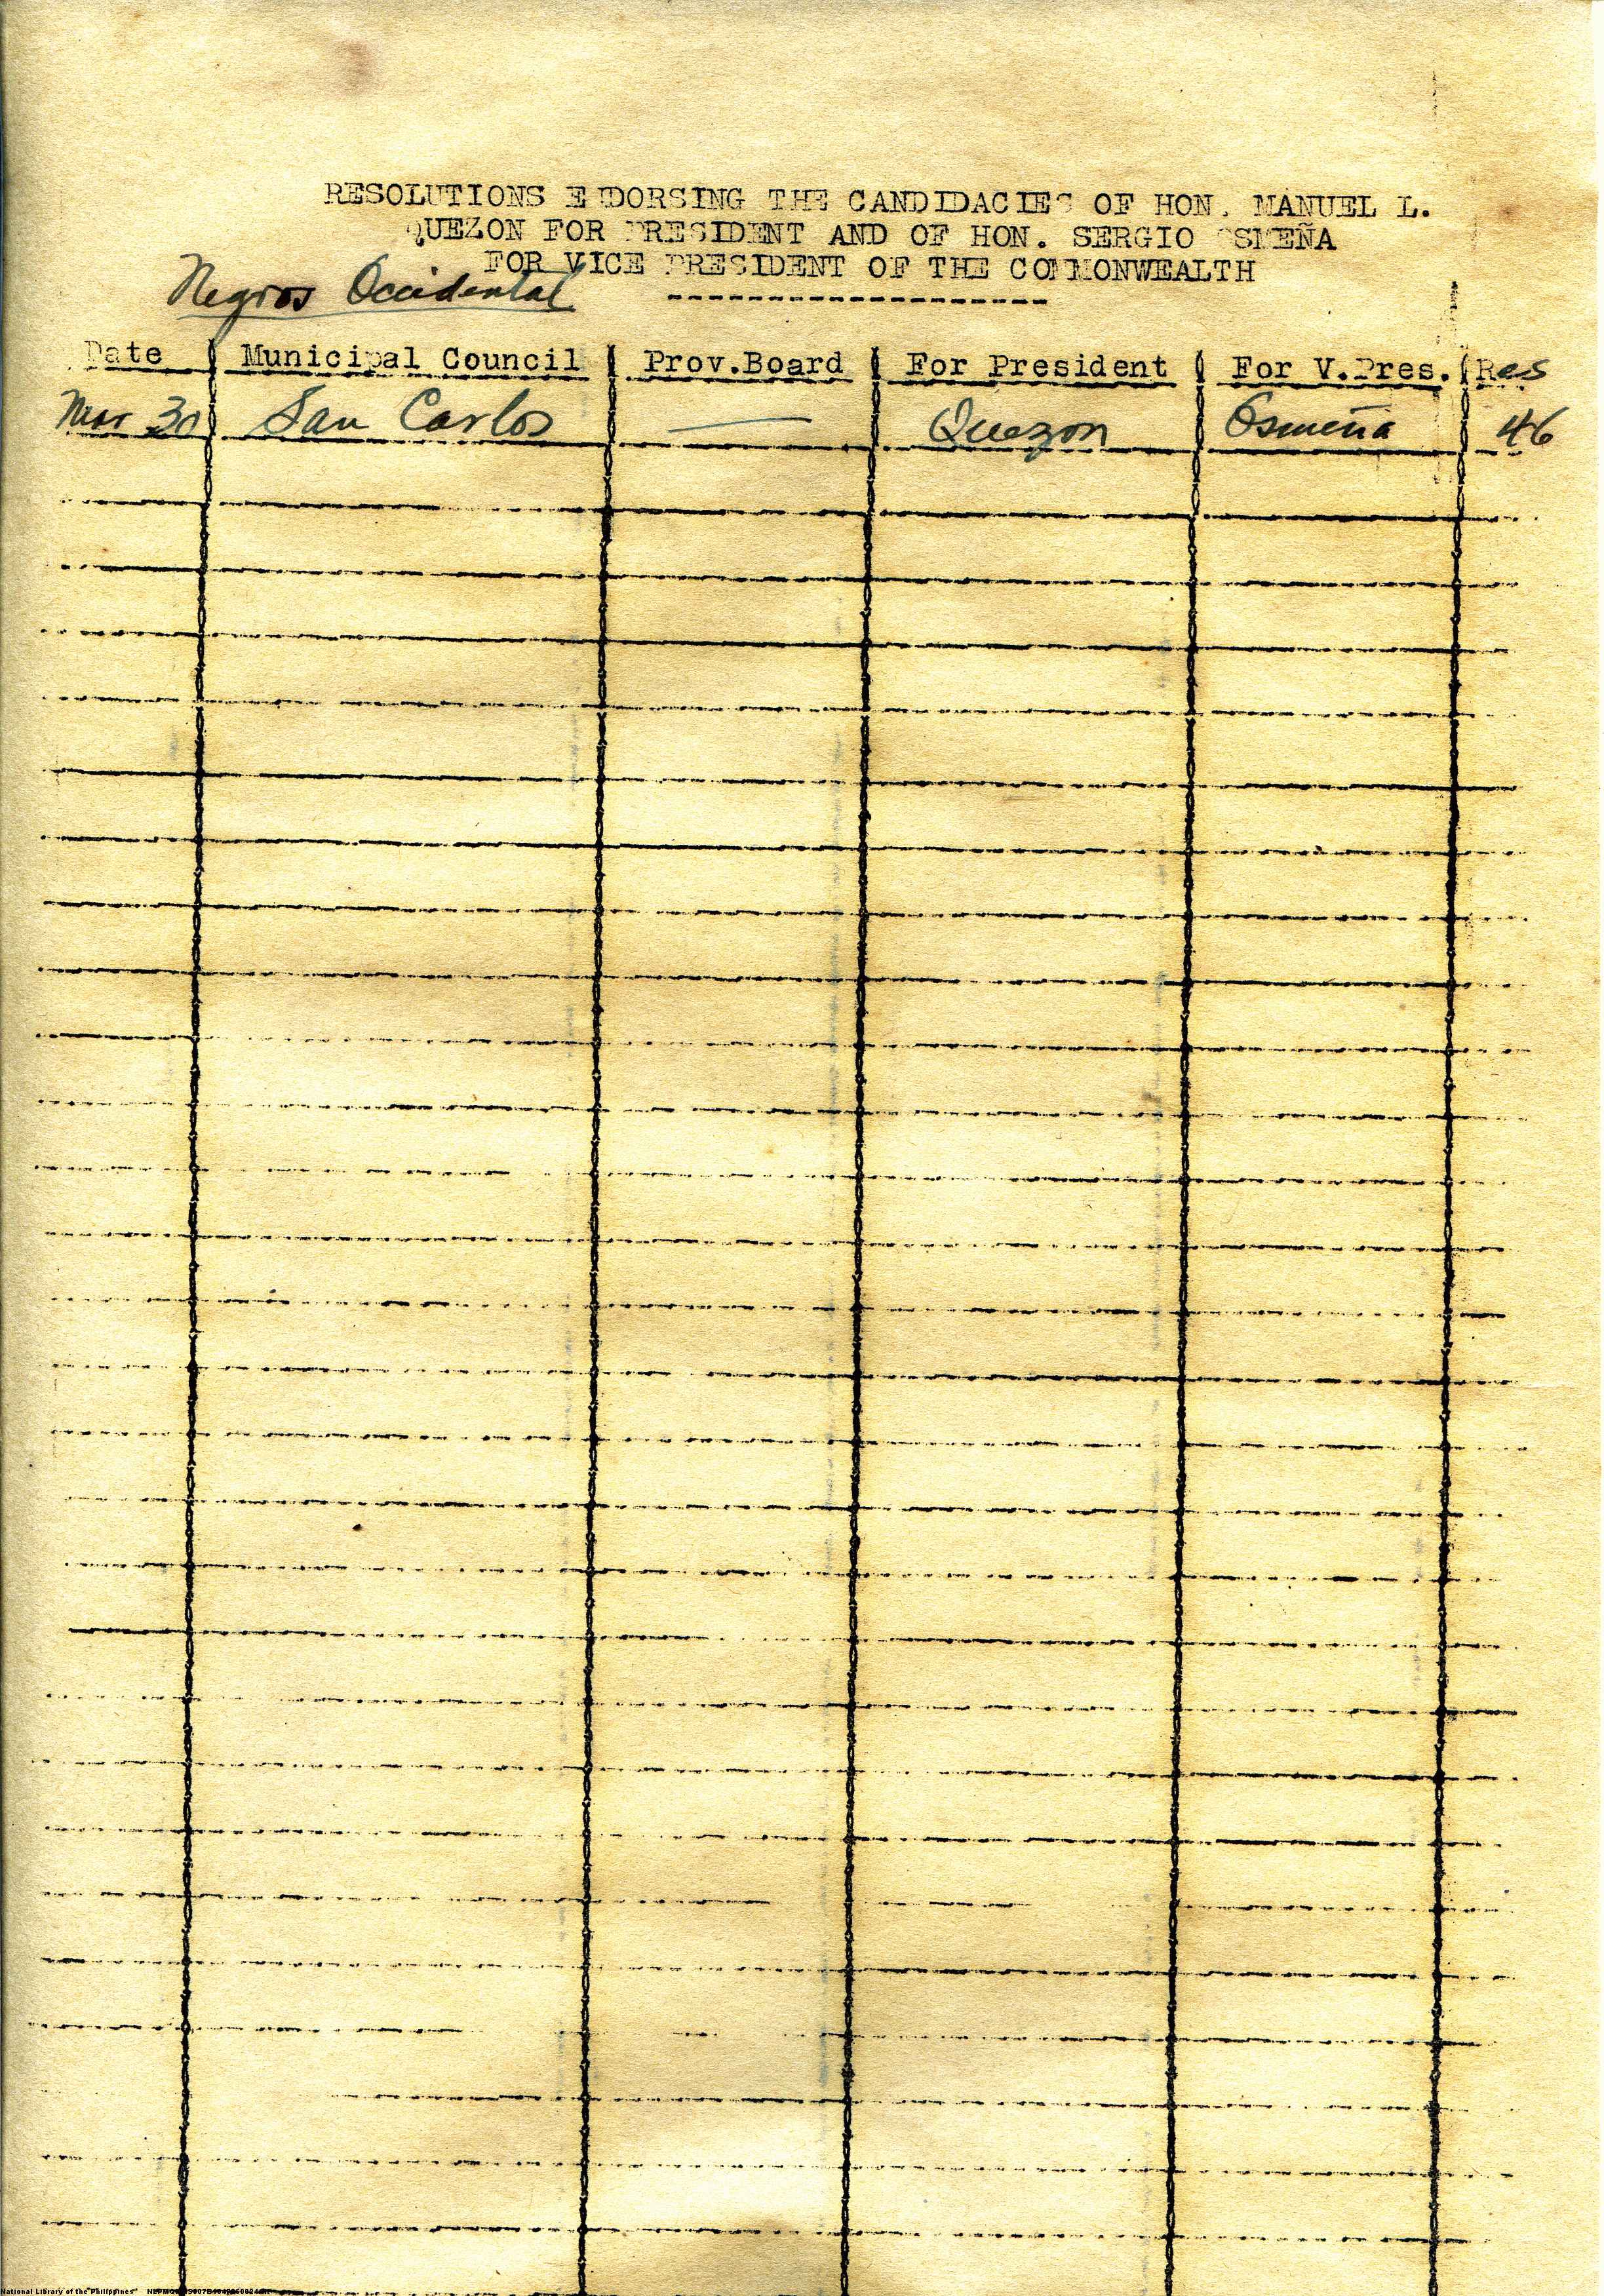 RESOLUTIONS ENDORSING THE CANDIDACIES OF HON. MANUEL L.
QUEZON FOR PRESIDENT AND OF HON. SERGIO OSMEÑA
FOR VICE PRESIDENT OF THE COMMONWEALTH
Negros Occidental
Date Municipal Council Prov.Board For President For V.Pres. Res
Mar 30 San Carlos — Quezon Osmeña 46
National Library of the Philippines